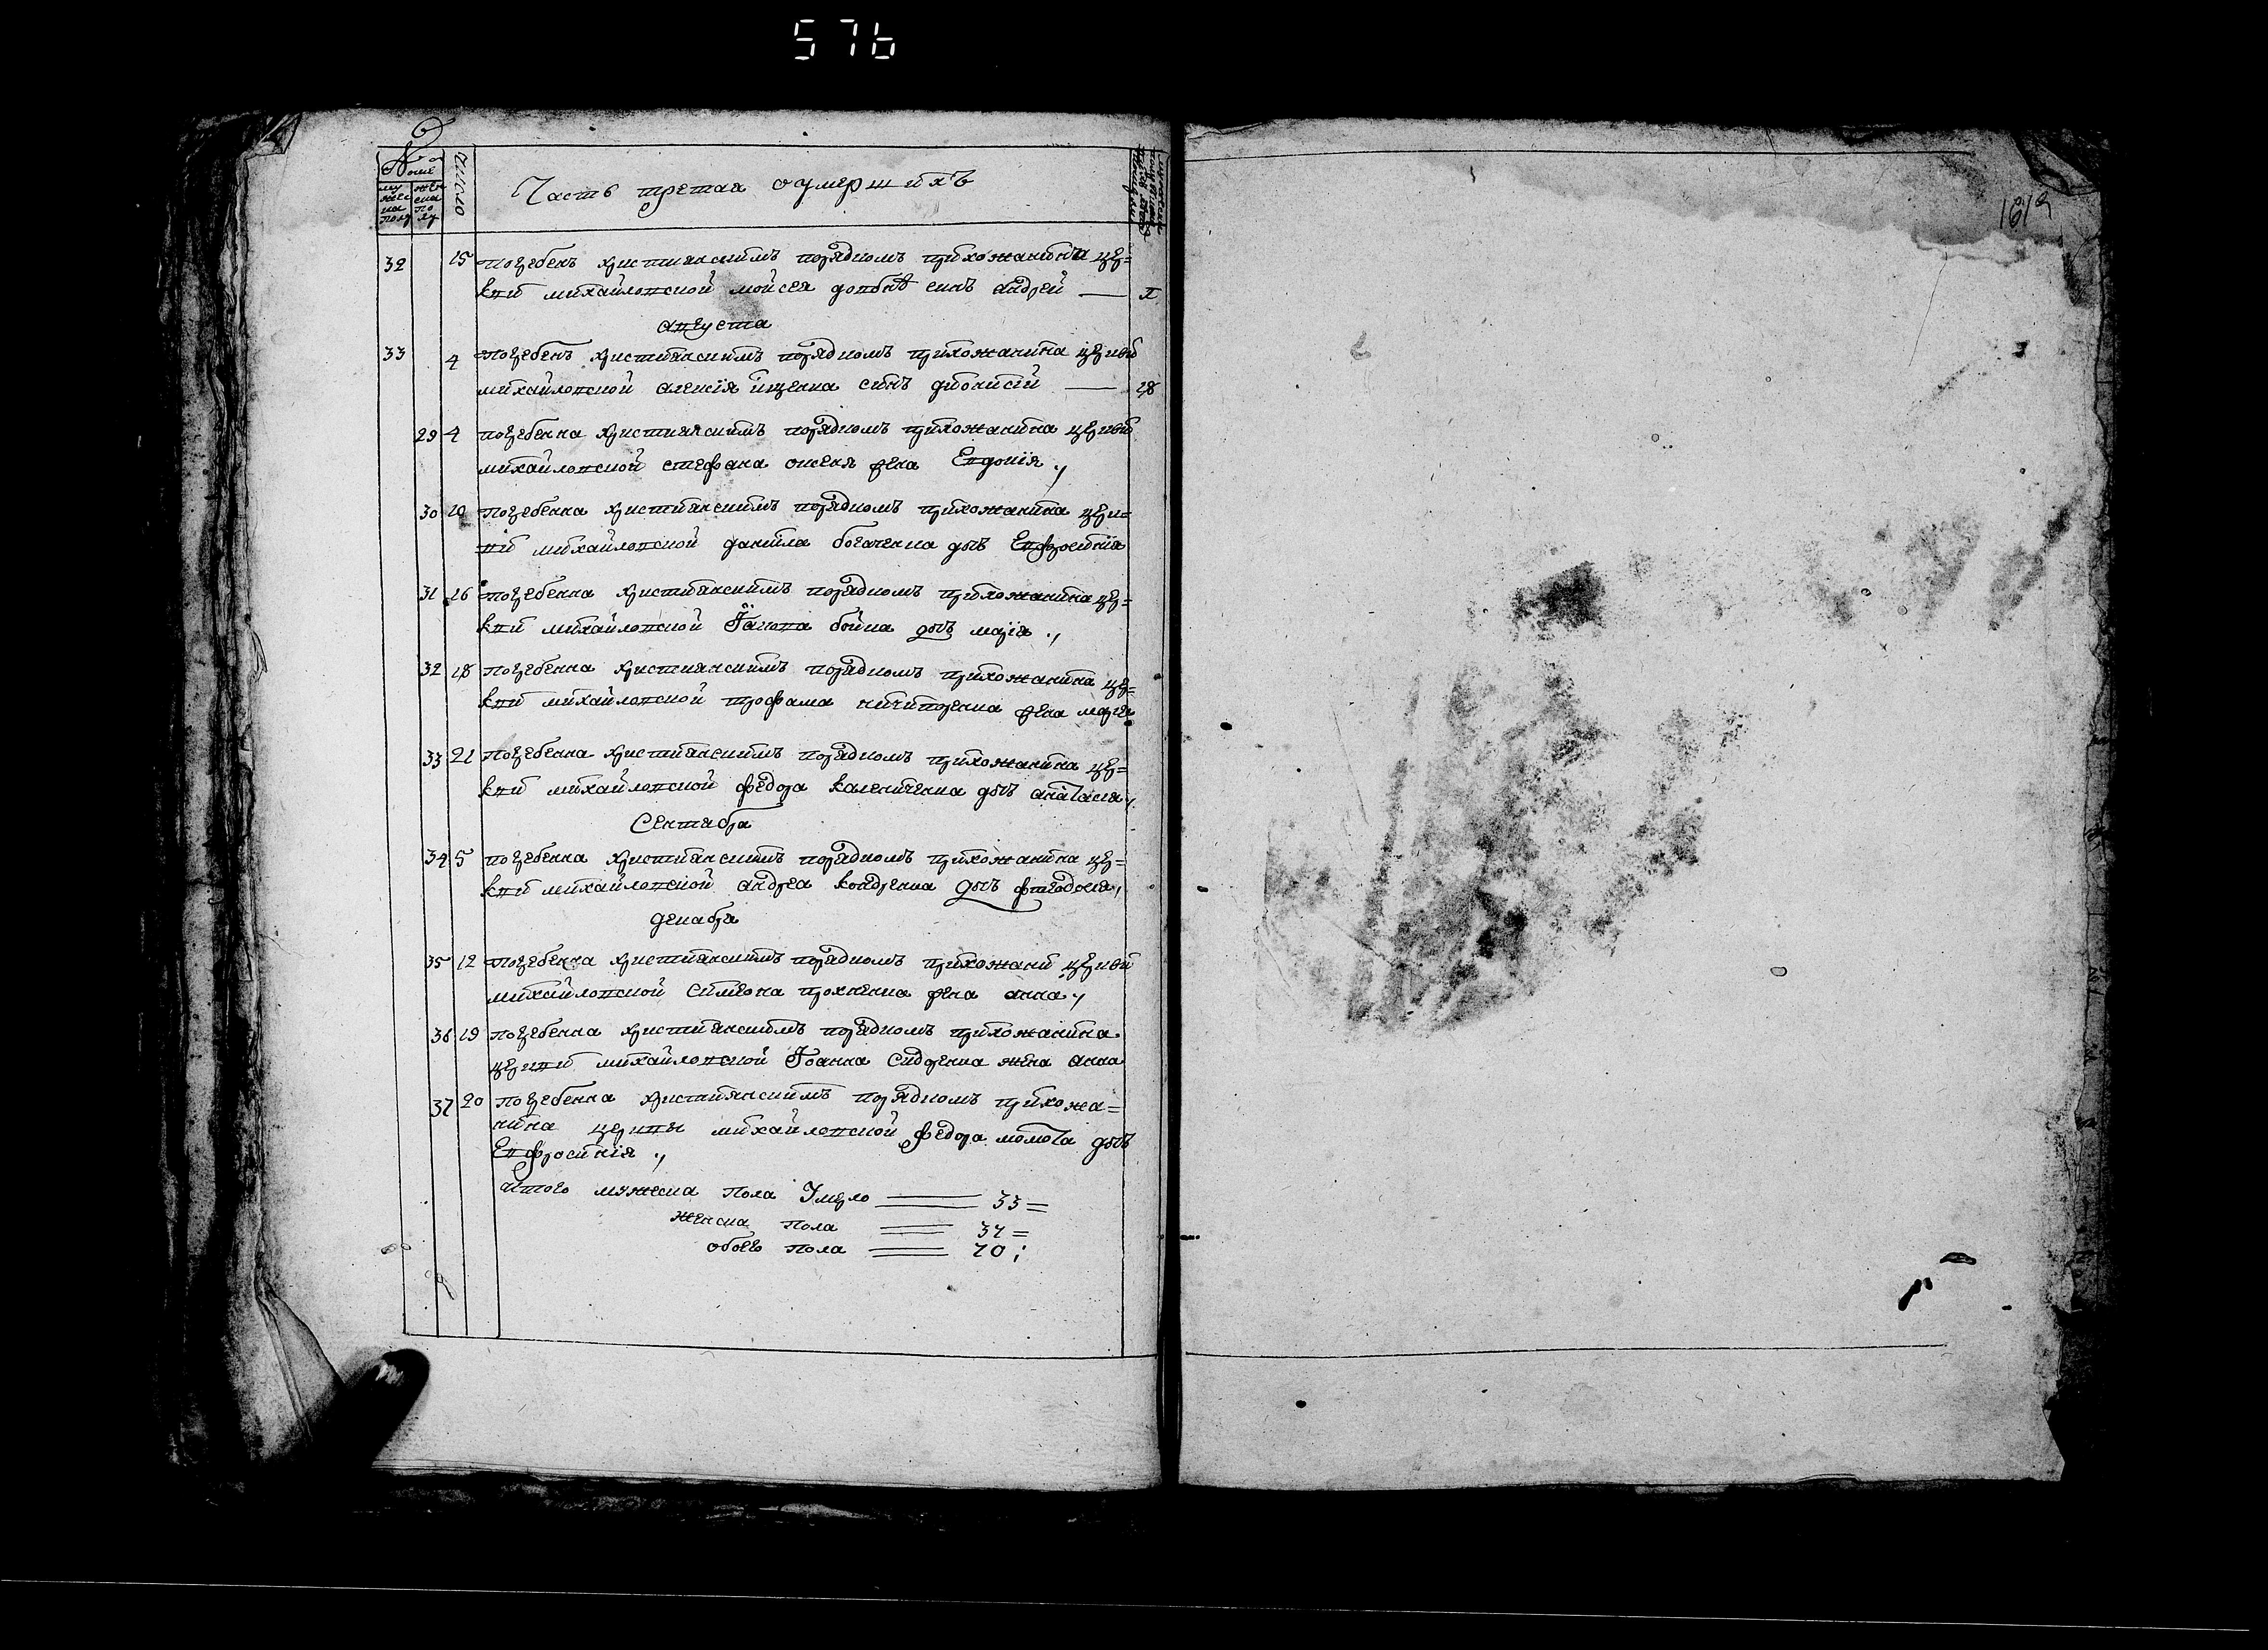 576
№
мужеска полу
женска полу
число
Часть третая оумершихъ
32 15 погребенъ христианскимъ порядкомъ прихожанина цер=
квй михайловской мойсея довбнѣ синъ андрей —
августа
33 4 погребенъ христианскимъ порядкомъ прихожанина церквй
михайловской алексія ищенка синъ дионисій — 18
29 4 погребенна христианскимъ порядкомъ прихожанина церквй
михайловской стефана жена Евдокія
30 10 погребенна христианскимъ порядкомъ прихожанина церк=
вй михайловской данйила богаченка дочь Евфросинія
31 16 погребенна христианскимъ порядкомъ прихожанина цер=
квй михайловской Іакова бойка дочь марія
32 18 погребенна христианскимъ порядкомъ прихожанина цер=
квй михайловской трофима ничипоренка жена марія
33 21 погребенна христианскимъ порядкомъ прихожанина цер=
квй михайловской федора калениченка дочь анастасія
Сентабра
34 5 погребенна христианскимъ порядкомъ прихожанина цер=
квй михайловской андрея кондренка дочь феодосія
декабра
35 12 погребенна христианскимъ порядкомъ прихожани церквй
михайловской Симеона прохненка жена анна
36 19 погребенна христианскимъ порядкомъ прихожанина
церквй михайловской Іоанна Сидоренка жена анна
37 20 погребенна христианскимъ порядкомъ прихожа=
нина церквы михайловской федора момота дочь
Евфросинія
итого мужеска пола Умерло — 33 =
женска пола — 37 =
обоего пола — 70 ;